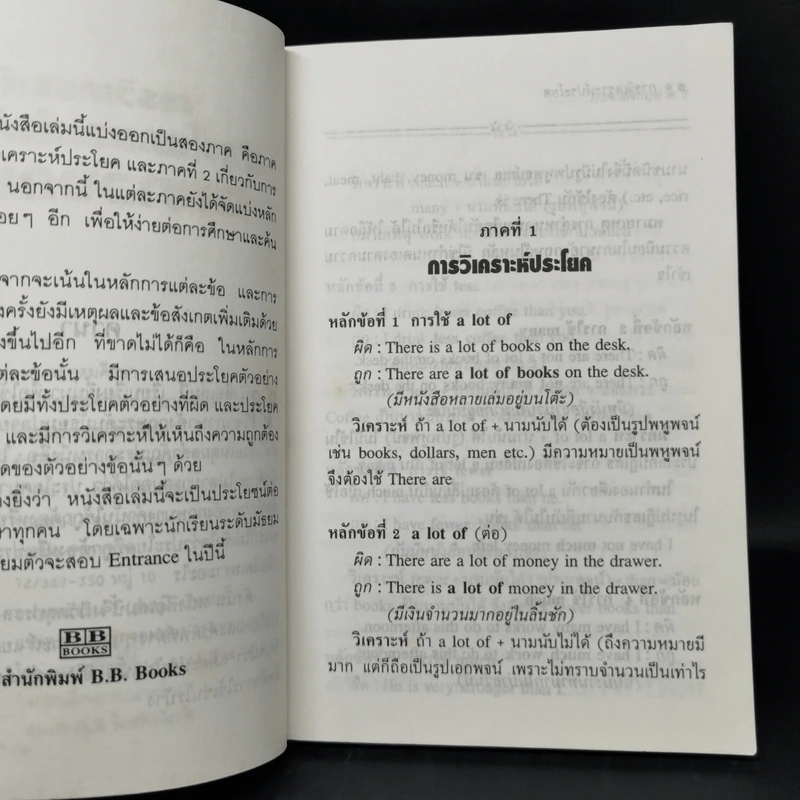 นังสือเล่มนี้แบ่งออกเป็นสองภาค คือภาค
เคราะห์ประโยค และภาคที่ 2 เกี่ยวกับการ
นอกจากนี้ ในแต่ละภาคยังได้จัดแบ่งหลัก
อยๆ อีก เพื่อให้ง่ายต่อการศึกษาและค้น
จากจะเน้นในหลักการแต่ละข้อ และการ
งครั้งยังมีเหตุผลและข้อสังเกตเพิ่มเติมด้วย
งขึ้นไปอีก ที่ขาดไม่ได้ก็คือ ในหลักการ
ต่ละข้อนั้น มีการเสนอประโยคตัวอย่าง
ดยมีทั้งประโยคตัวอย่างที่ผิด และประโยค
และมีการวิเคราะห์ให้เห็นถึงความถูกต้อง
ดของตัวอย่างข้อนั้นๆ ด้วย
างยิ่งว่า หนังสือเล่มนี้จะเป็นประโยชน์ต่อ
ษาทุกคน โดยเฉพาะนักเรียนระดับมัธยม
ยมตัวจะสอบ Entrance ในปีนี้
BB
BOOKS
สำนักพิมพ์ B.B. Books
ภาคที่ 1
การวิเคราะห์ประโยค
หลักข้อที่ 1 การใช้ a lot of
ผิด : There is a lot of books on the desk.
ถูก : There are a lot of books on the desk.
(มีหนังสือหลายเล่มอยู่บนโต๊ะ)
วิเคราะห์ ถ้า a lot of + นามนับได้ (ต้องเป็นรูปพหูพจน์
เช่น books, dollars, men etc.) มีความหมายเป็นพหูพจน์
จึงต้องใช้ There are
หลักข้อที่ 2 a lot of (ต่อ)
ผิด : There are a lot of money in the drawer.
ถูก : There is a lot of money in the drawer.
(มีเงินจำนวนมากอยู่ในลิ้นชัก)
วิเคราะห์ ถ้า a lot of + นามนับไม่ได้ (ถึงความหมายมี
มาก แต่ก็ถือเป็นรูปเอกพจน์ เพราะไม่ทราบจำนวนเป็นเท่าไร